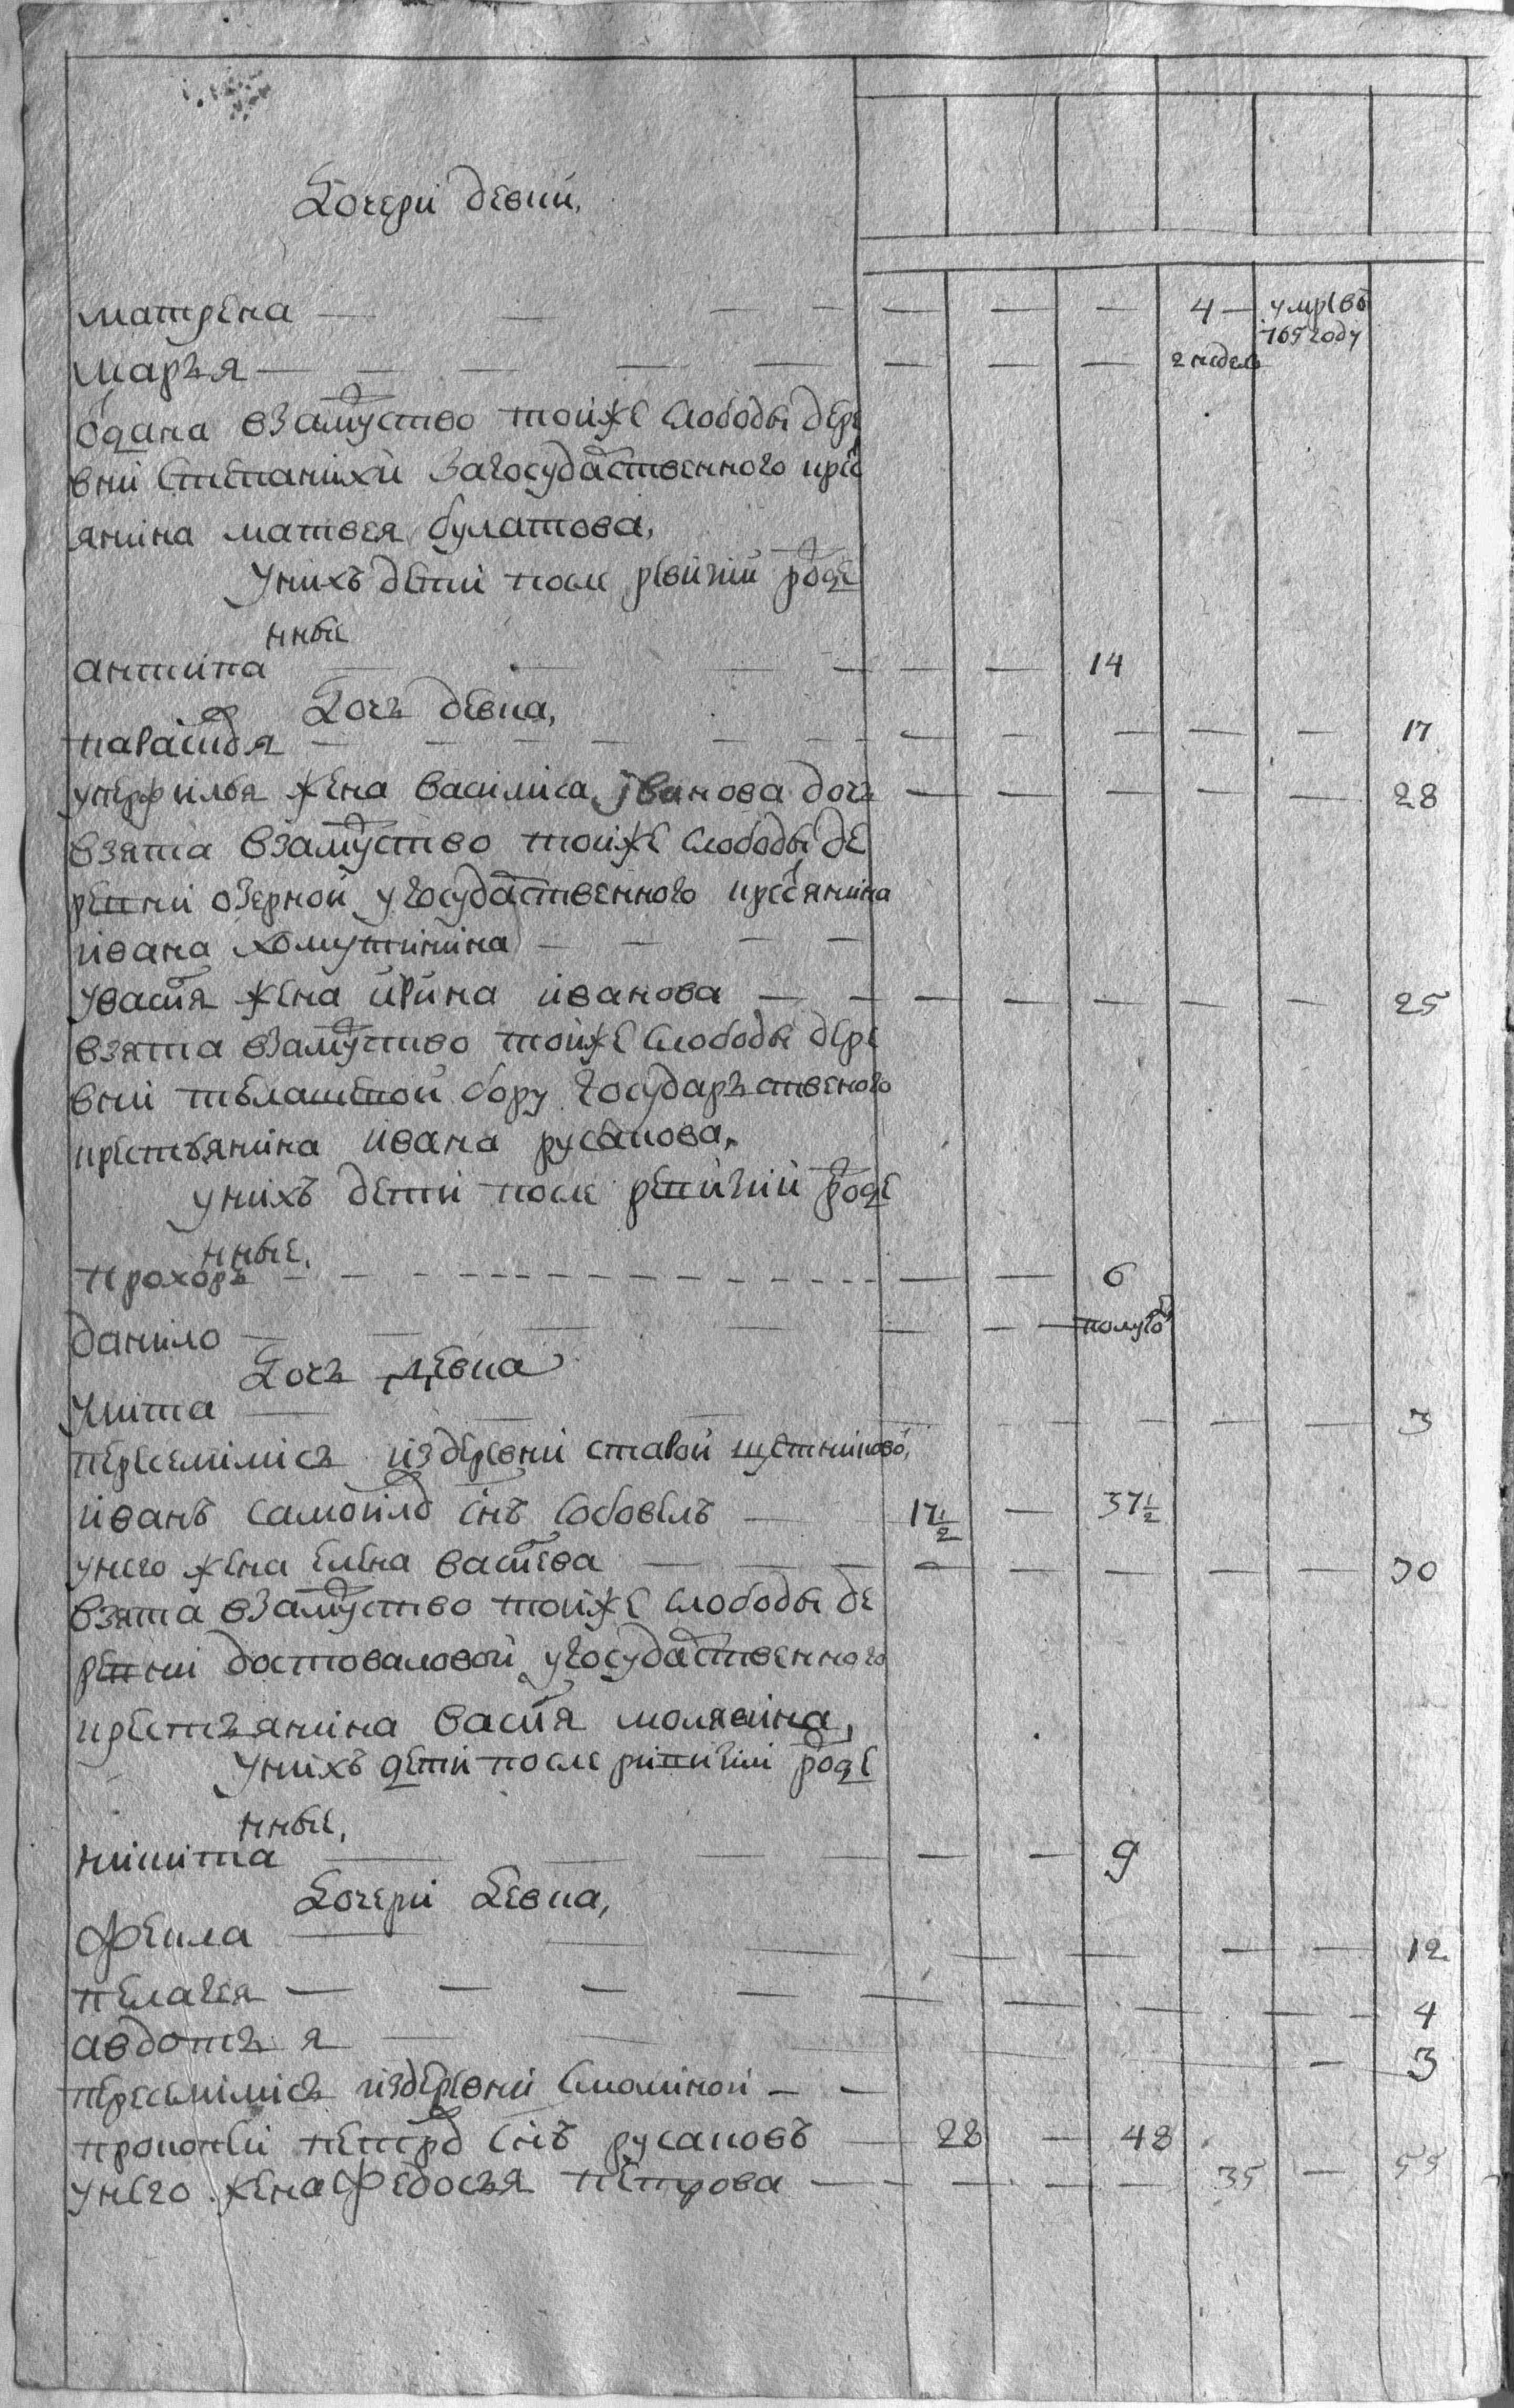 Дочери девки,
матрена — — — — — — — 4 — умре въ
769 году
марья — — — — — — — — 2 недель
одана взамуство тоиже слободы дере
вни степанихи за государственного крес
янина матвея булатова,
Унихъ дети после ревизии роде
нные
антипа — — — — — — 14
Дочь девка,
параскодя — — — — — — — — — 17
уперфилья жена василиса иванова дочь — — — — — 28
взята взамуство тоиже слободы де
ревни озерной у государственного кресянина
ивана хомутинина — — — —
увасия жена ирина иванова — — — — — — — 25
взята взамуство тоиже слободы дере
вни бору государьственого
крестьянина ивана русакова,
унихъ дети после ревизии роде
нные,
прохоръ — — — — — 6
данило — — — — — — полуго
Дочь девка
Улита — — — — — — — 3
переселились издеревни старой щетниковой,
иванъ самойло снъ соковелъ — 17½ — 37½
унего жена елена васиева — — — — — — — 30
взята взамуство тоиже слободы де
ревни достоваловой у государственного
крестьянина васия молявина,
Унихъ дети после ревизии роде
нные,
никита — — — — — — 9
Дочери девка,
Фекла — — — — — — — 12
пелагея — — — — — — — — 4
авдотья — — — — — 3
переселились издеревни смолиной — —
прокопеи петро снъ русаковъ — 28 — 48
унего жена федосья петрова — — — — — 35 — 55